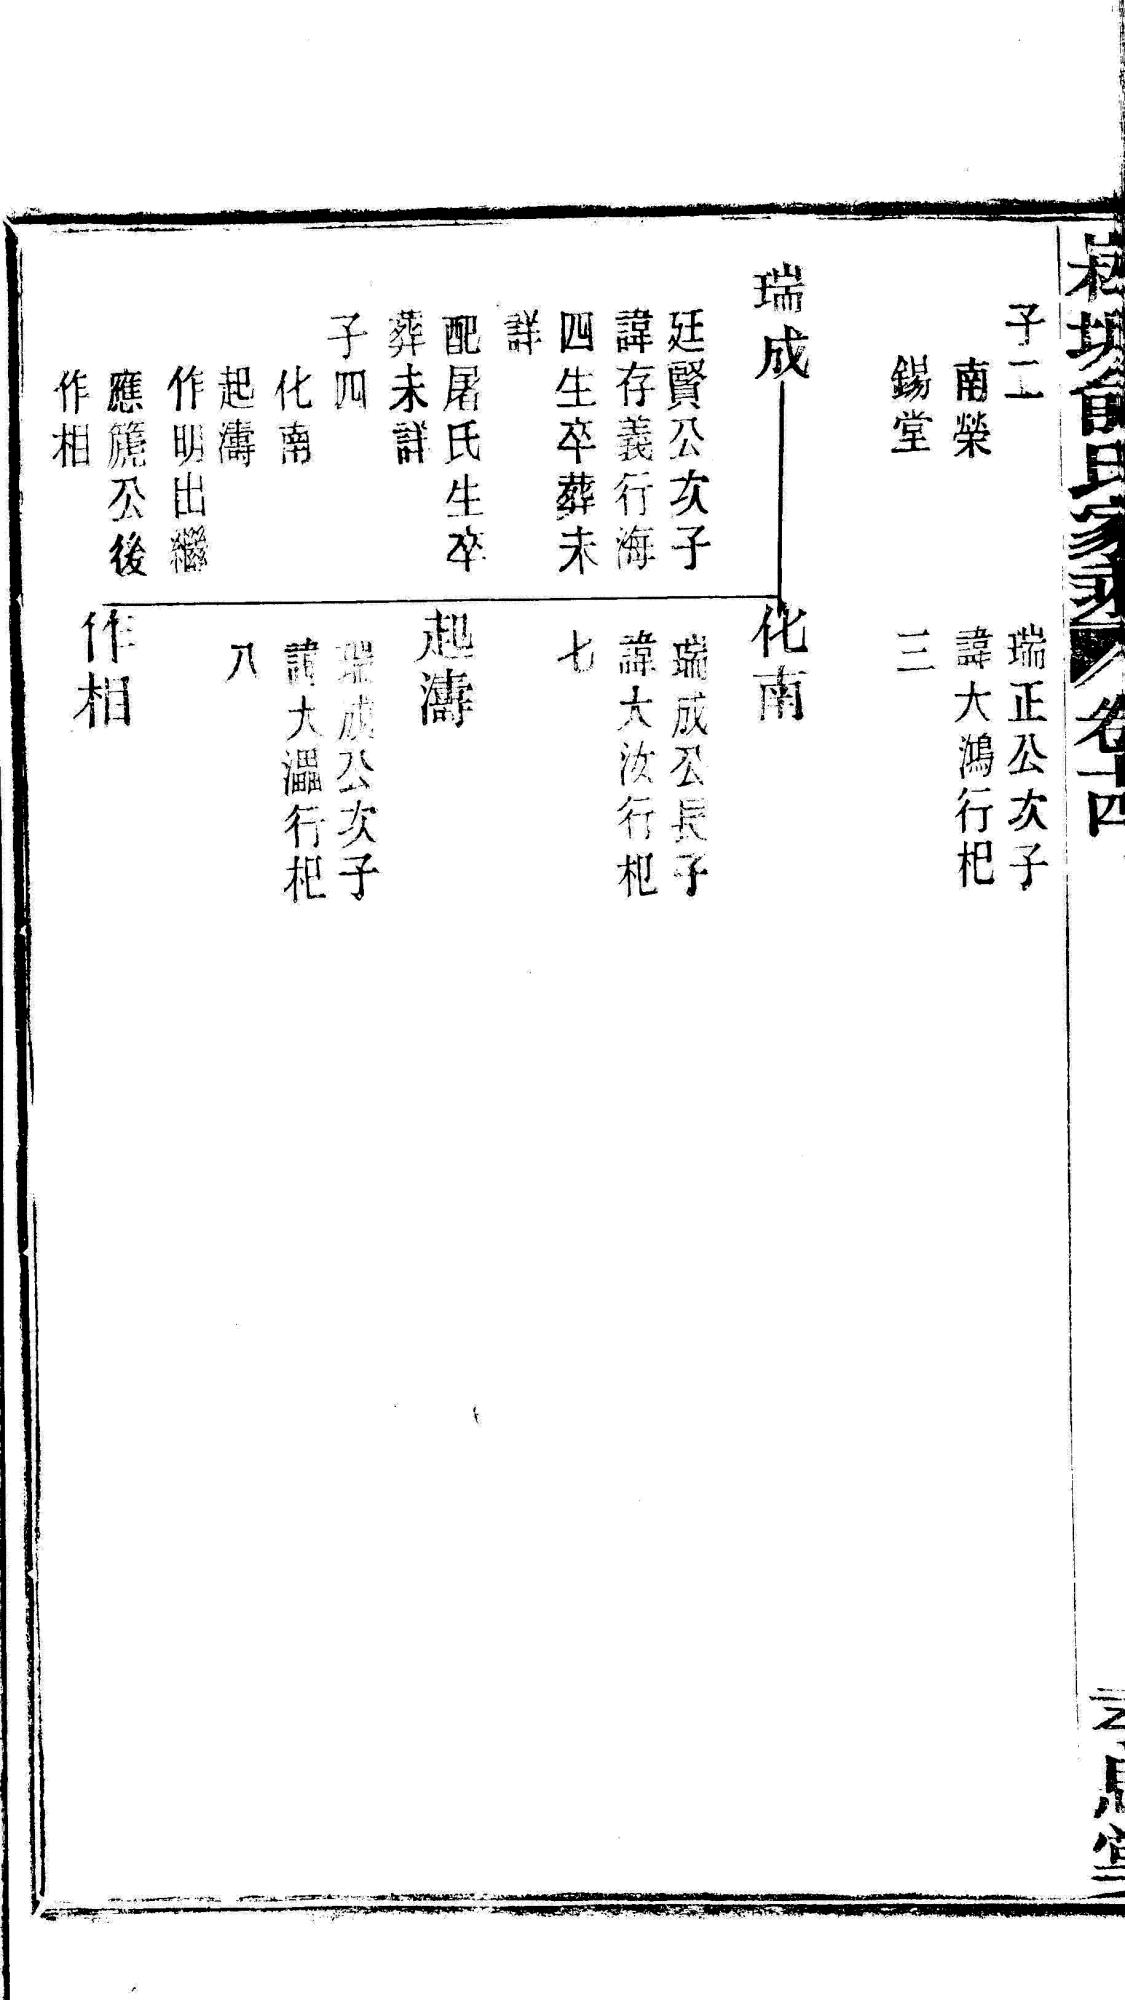 氏家乘 卷十四
子二
南榮
錫堂
瑞正公次子
諱大鴻行杞
三
瑞成
廷賢公次子
諱存義行海
四生卒葬未
詳
配屠氏生卒
葬未詳
子四
化南
起濤
作明出繼
應箎公後
作相
化南
瑞成公長子
諱大汝行杞
七
起濤
瑞成公次子
諱大溫行杞
八
作相
思堂